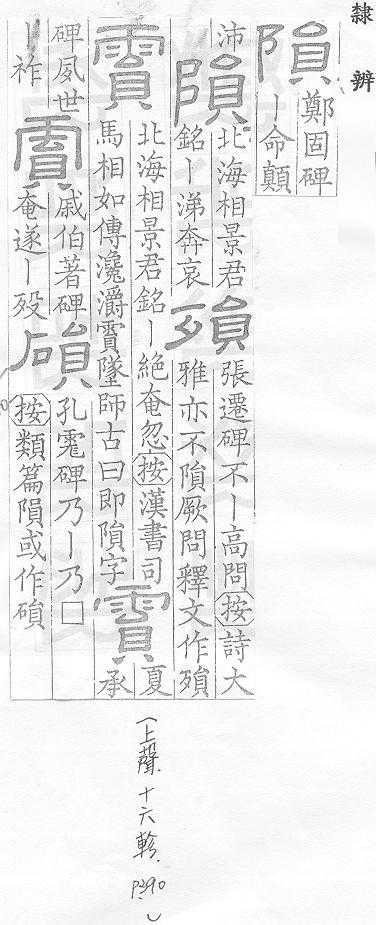 隸辨
隕
鄭固碑
丨命顛
沛
隕
北海相景君
銘丨涕奔哀
殞
張遷碑不丨高問按詩大
雅亦不隕厥問釋文作殞
霣
北海相景君銘丨絕奄忽按漢書司
馬相如傳瀺灂霣墜師古曰即隕字
霣
夏
承
碑夙世
丨祚
霣
戚伯著碑
奄遂丨歿
磒
孔碑乃丨乃□
按類篇隕或作磒
(上聲.十六軫.P290)